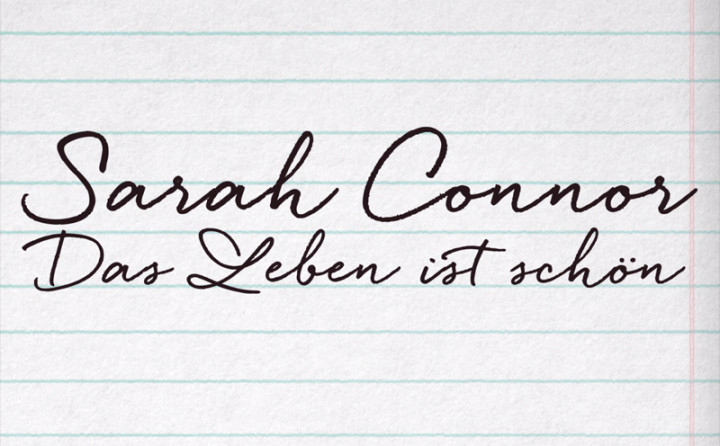 Sarah Connor
Das Leben ist schön